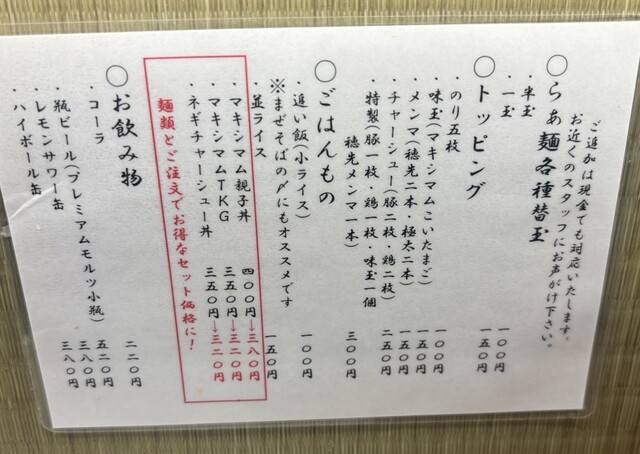 ご追加は現金でも対応いたします。
お近くのスタッフにお声がけ下さい。
〇らぁ麺各種替玉
・半玉 一〇〇円
・一玉 一五〇円
〇トッピング
・のり五枚 一〇〇円
・味玉(マキシマムこいたまご) 一五〇円
・メンマ(穂先二本・極太二本) 一五〇円
・チャーシュー(豚二枚・鶏二枚) 二五〇円
・特製(豚一枚・鶏一枚・味玉一個
穂先メンマ一本) 三〇〇円
〇ごはんもの
・追い飯(小ライス) 一〇〇円
※まぜそばの〆にもオススメです
・並ライス 一五〇円
・マキシマム親子丼 四〇〇円→三八〇円
・マキシマムTKG 三五〇円→三二〇円
・ネギチャーシュー丼 三五〇円→三二〇円
麺類とご注文でお得なセット価格に!
〇お飲み物
・コーラ 二二〇円
・瓶ビール(プレミアムモルツ小瓶) 五二〇円
・レモンサワー缶 三八〇円
・ハイボール缶 三八〇円